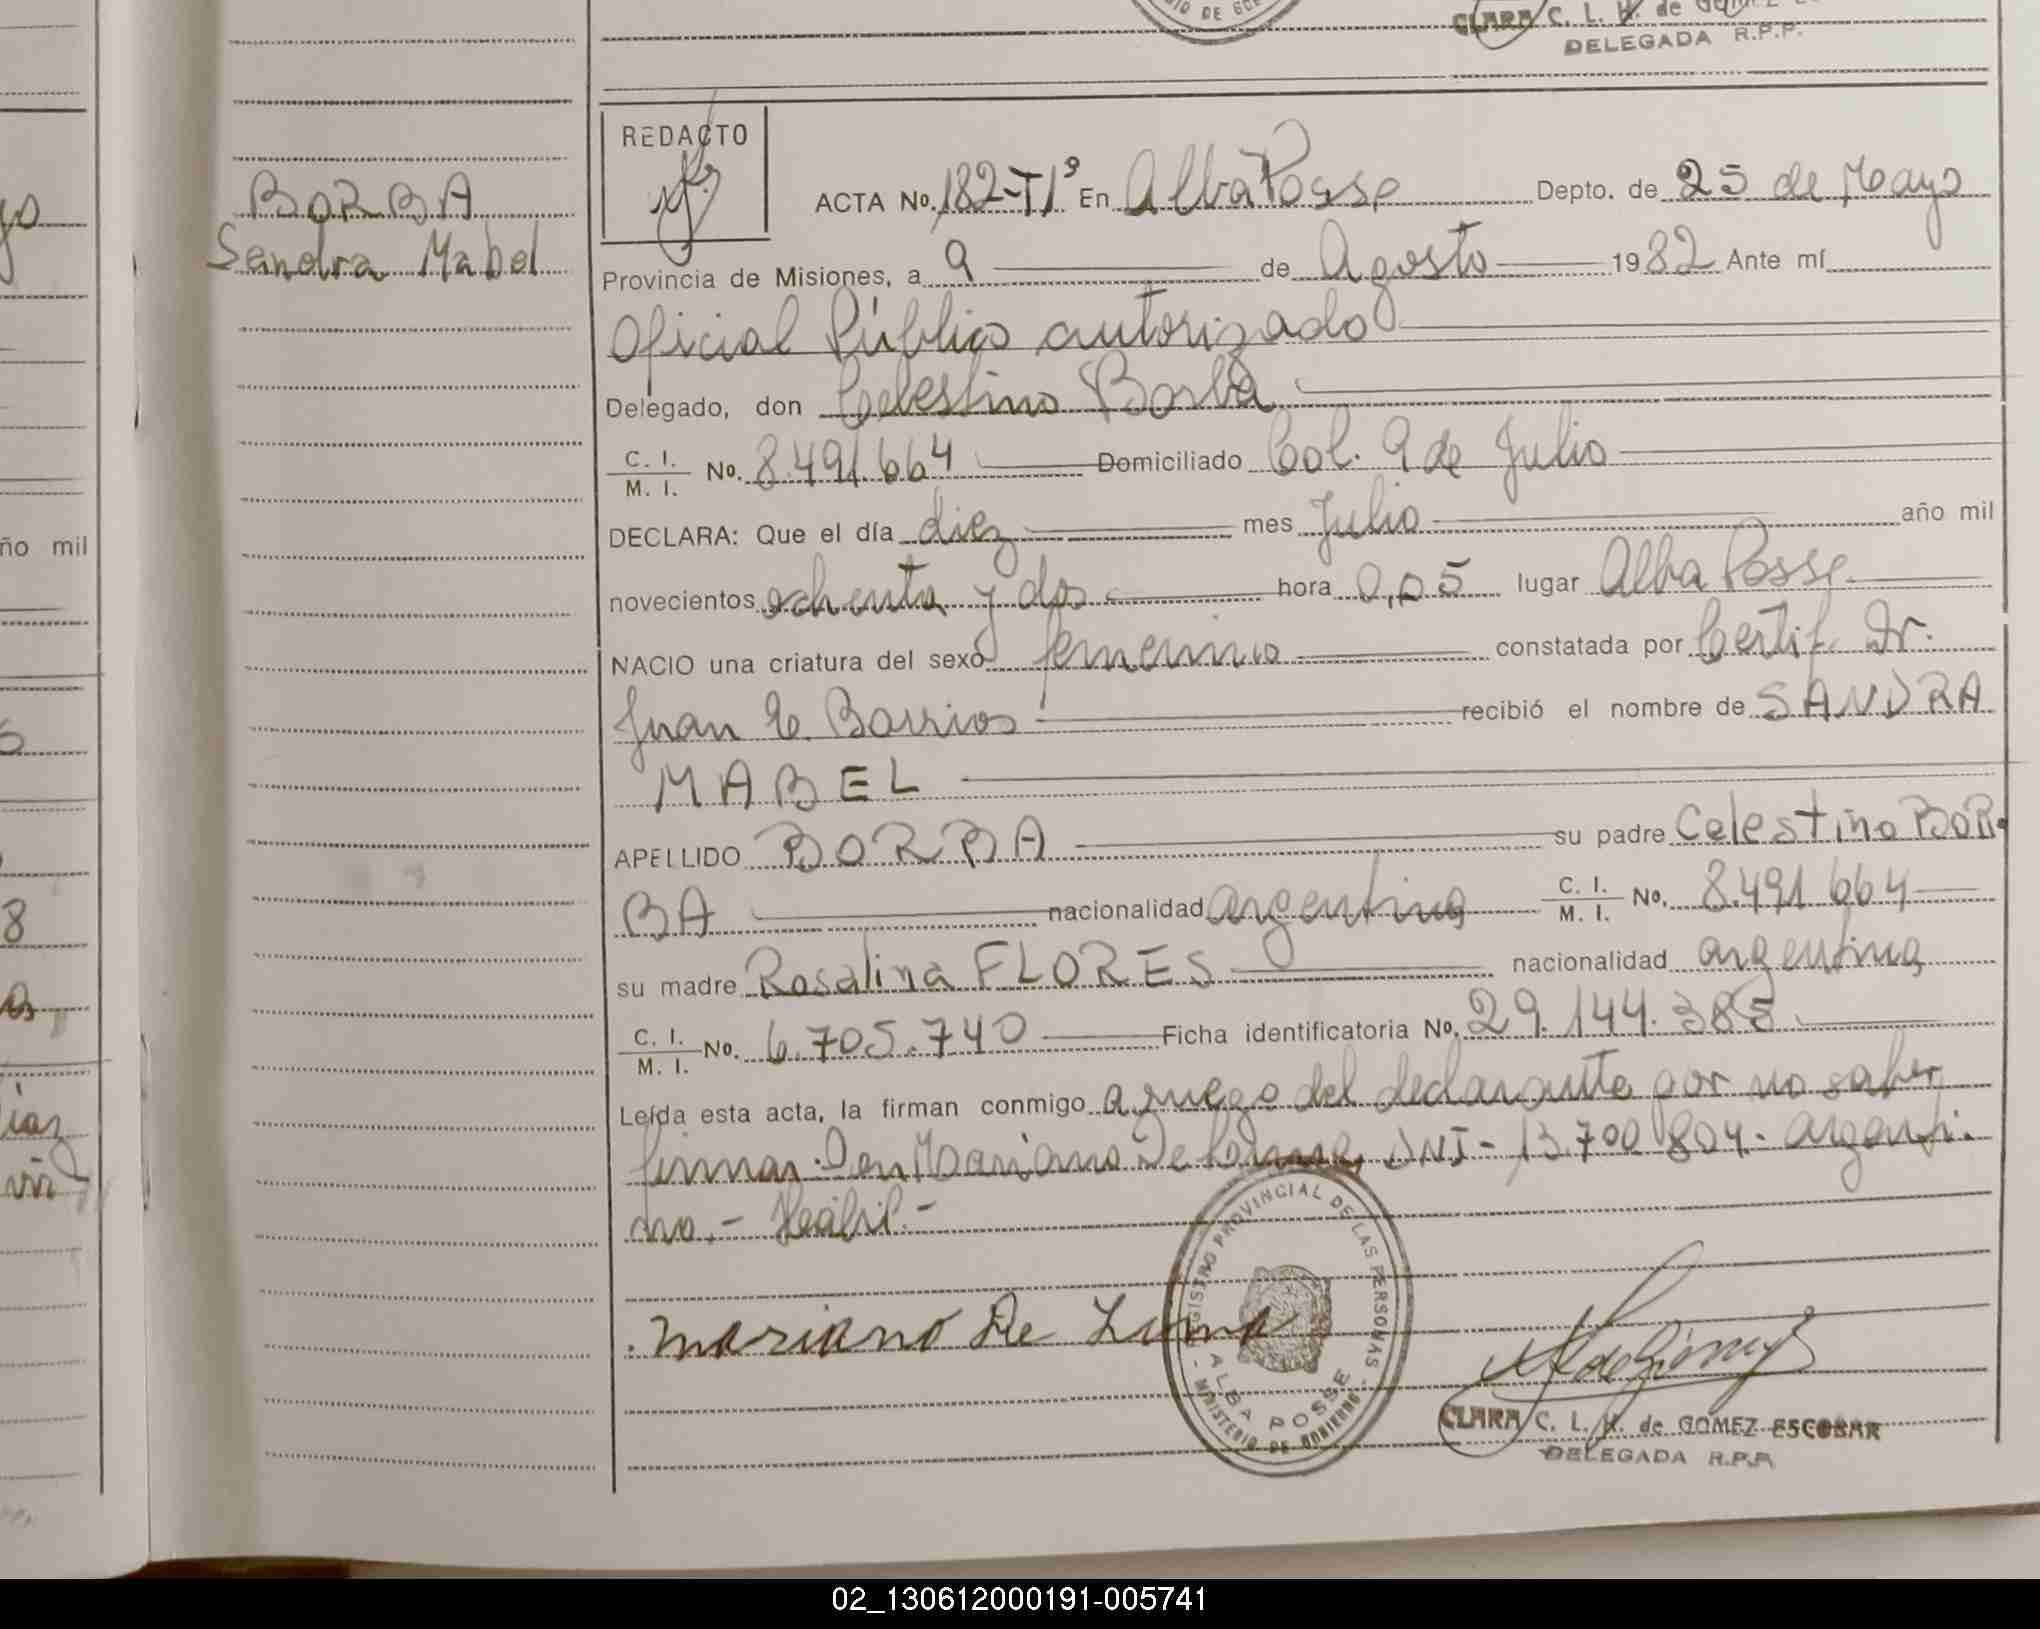 CLARA C. L. H. de
DELEGADA R.P.P.
REDACTO
BORBA
Sandra Mabel
ACTA No. 182-T1º En Alba Posse Depto. de 25 de Mayo
Provincia de Misiones, a 9 de Agosto 1982 Ante mí
Oficial Público autorizado
Delegado, don Celestino Borba
C. I. / M. I. No. 8.491.664 Domiciliado Col. 9 de Julio
DECLARA: Que el día diez mes Julio año mil
novecientos ochenta y dos hora 0,05 lugar Alba Posse
NACIO una criatura del sexo femenino constatada por Certif. Dr.
Juan C. Barrios recibió el nombre de SANDRA
MABEL
APELLIDO BORBA su padre Celestino BOR-
BA nacionalidad argentina C. I. / M. I. No. 8.491.664
su madre Rosalina FLORES nacionalidad argentina
C. I. / M. I. No. 6.705.740 Ficha identificatoria No. 29.144.385
Leída esta acta, la firman conmigo a ruego del declarante por no saber
firmar: Don Mariano De Lima, DNI- 13.700.804- argenti-
no.- Hábil.-
Mariano De Lima
REGISTRO PROVINCIAL DE LAS PERSONAS
ALBA POSSE
MINISTERIO DE GOBIERNO
CLARA C. L. H. de GOMEZ ESCOBAR
DELEGADA R.P.P.
ño mil
02_130612000191-005741